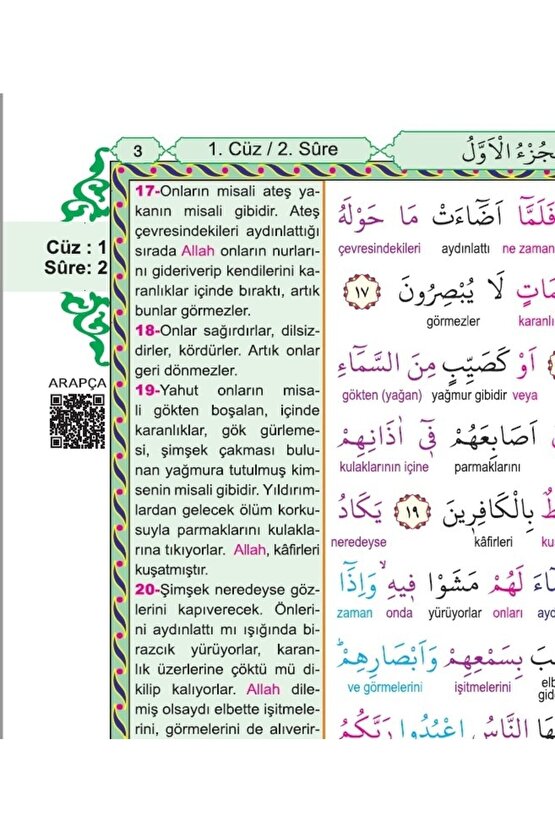 3
1. Cüz / 2. Sûre
الْاَوَّلُ
Cüz : 1
Sûre: 2
ARAPÇA
17-Onların misali ateş ya-
kanın misali gibidir. Ateş
çevresindekileri aydınlattığı
sırada Allah onların nurları-
nı gideriverip kendilerini ka-
ranlıklar içinde bıraktı, artık
bunlar görmezler.
18-Onlar sağırdırlar, dilsiz-
dirler, kördürler. Artık onlar
geri dönmezler.
19-Yahut onların misa-
li gökten boşalan, içinde
karanlıklar, gök gürleme-
si, şimşek çakması bulu-
nan yağmura tutulmuş kim-
senin misali gibidir. Yıldırım-
lardan gelecek ölüm korku-
suyla parmaklarını kulakla-
rına tıkıyorlar. Allah, kâfirleri
kuşatmıştır.
20-Şimşek neredeyse göz-
lerini kapıverecek. Önleri-
ni aydınlattı mı ışığında bi-
razcık yürüyorlar, karan-
lık üzerlerine çöktü mü di-
kilip kalıyorlar. Allah dile-
miş olsaydı elbette işitmele-
rini, görmelerini de alıverir-
فَلَمَّٓا اَضَٓاءَتْ مَا حَوْلَهُ
çevresindekileri aydınlattı ne zaman
لَا يُبْصِرُونَ ١٧
görmezler
اَوْ كَصَيِّبٍ مِنَ السَّمَٓاءِ
gökten (yağan) yağmur gibidir veya
اَصَابِعَهُمْ فٖٓي اٰذَانِهِمْ
kulaklarının içine parmaklarını
بِالْكَافِرٖينَ ١٩ يَكَادُ
neredeyse kâfirleri
لَهُمْ مَشَوْا فٖيهِ وَاِذَٓا
zaman onda yürüyorlar onları
بِسَمْعِهِمْ وَاَبْصَارِهِمْ
ve görmelerini işitmelerini
النَّاسُ اعْبُدُوا رَبَّكُمُ